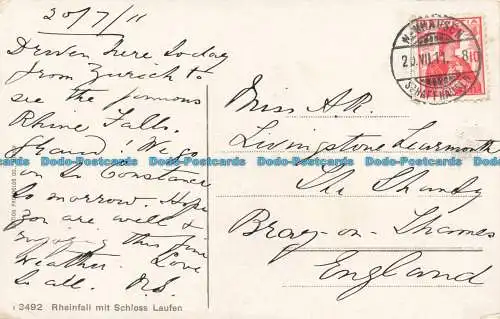 20/7/11
Driven here to-day
from Zurich to
see the famous
Rhine Falls.
Grand! We go
on to Constance
to morrow. Hope
you are well &
enjoying this fine
weather. Love
to all.
Miss A.R.
Livingstone Learmonth
The Shanty
Bray-on-Thames
England
NEUHAUSEN
20.VII.11. 8
Dodo-Postcards Dodo-Postcards Dodo-Postcards Dodo-Postcards Dodo-Postcards
3492 Rheinfall mit Schloss Laufen